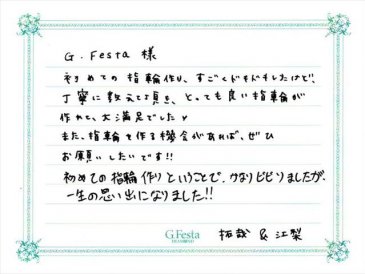 G.Festa 様
初めての指輪作り、すごくドキドキしたけど、
丁寧に教えて頂き、とっても良い指輪が
作れて、大満足でした♪
また、指輪を作る機会があれば、ぜひ
お願いしたいです!!
初めての指輪作りということで、かなりビビりましたが、
一生の思い出になりました!!
G.Festa
拓哉 & 江梨